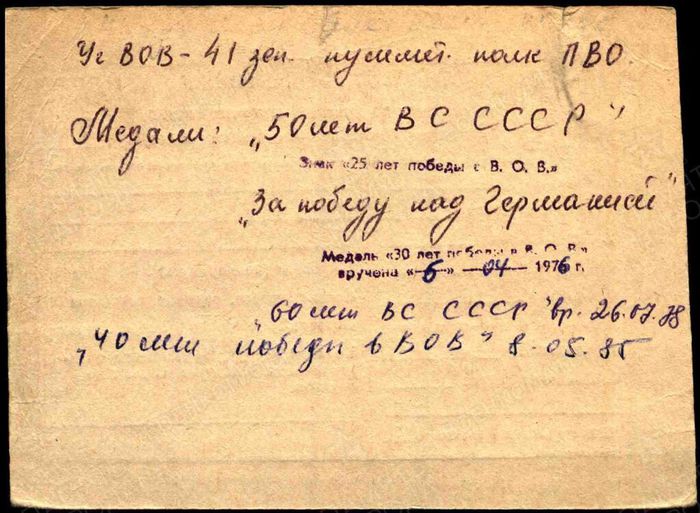 Уч ВОВ - 41 зен. пулемет. полк ПВО.
Медали: „50 лет ВС СССР"
Знак «25 лет победы в В. О. В.»
„За победу над Германией"
Медаль «30 лет победы в В. О. В»
вручена «6» 04 1976 г.
„60 лет ВС СССР" вр. 26.07.78
„40 лет победы в ВОВ" 8.05.85